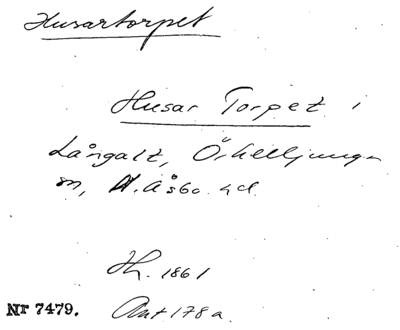 Husartorpet
Husar Torpet i
Långalt, Örkelljunga
sn, N. Åsbo hd.
Hh. 1861
Ant 178 a.
Nr 7479.